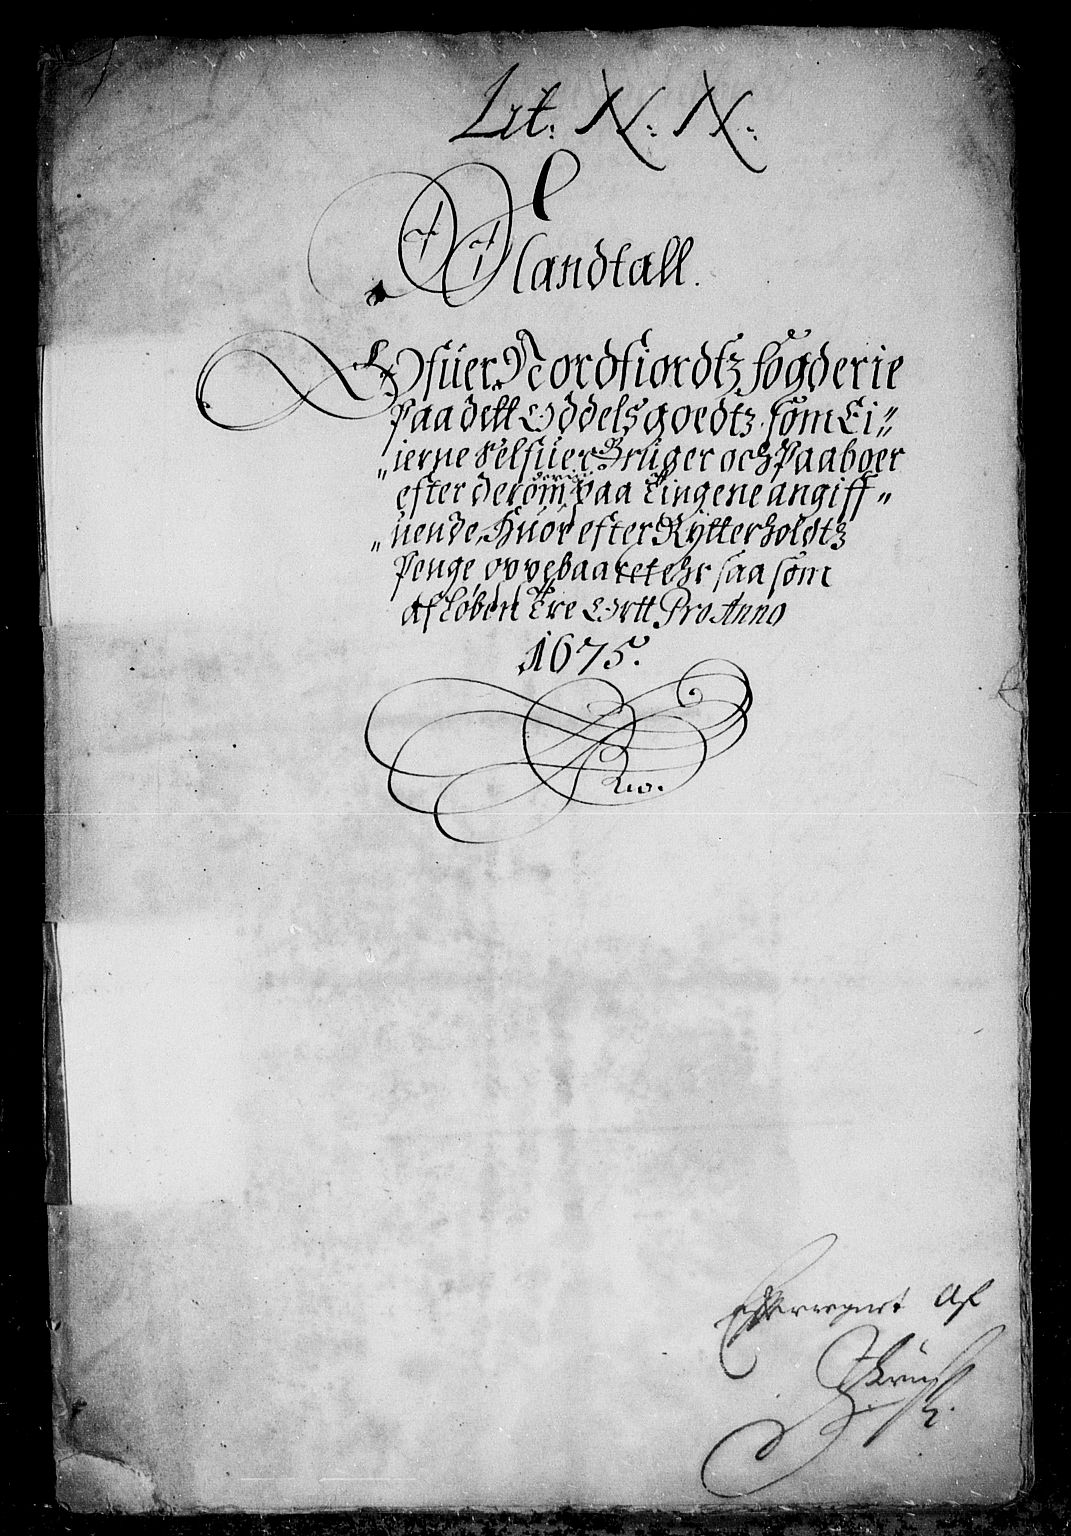 Lit: N: N:
Mandtall.
Ofuer Nordfiordtz fogderie
Paa dett Oddels goedtz som Ei„
„ierne selfuer Bruger och Paaboer
efter derom paa Tingene angiff„
„uende, Huor efter Rytterholdtz
Penge oppebaaret ehr saa som
afløben Tre Ortt Pro Anno
1675.
Efterregnet Af